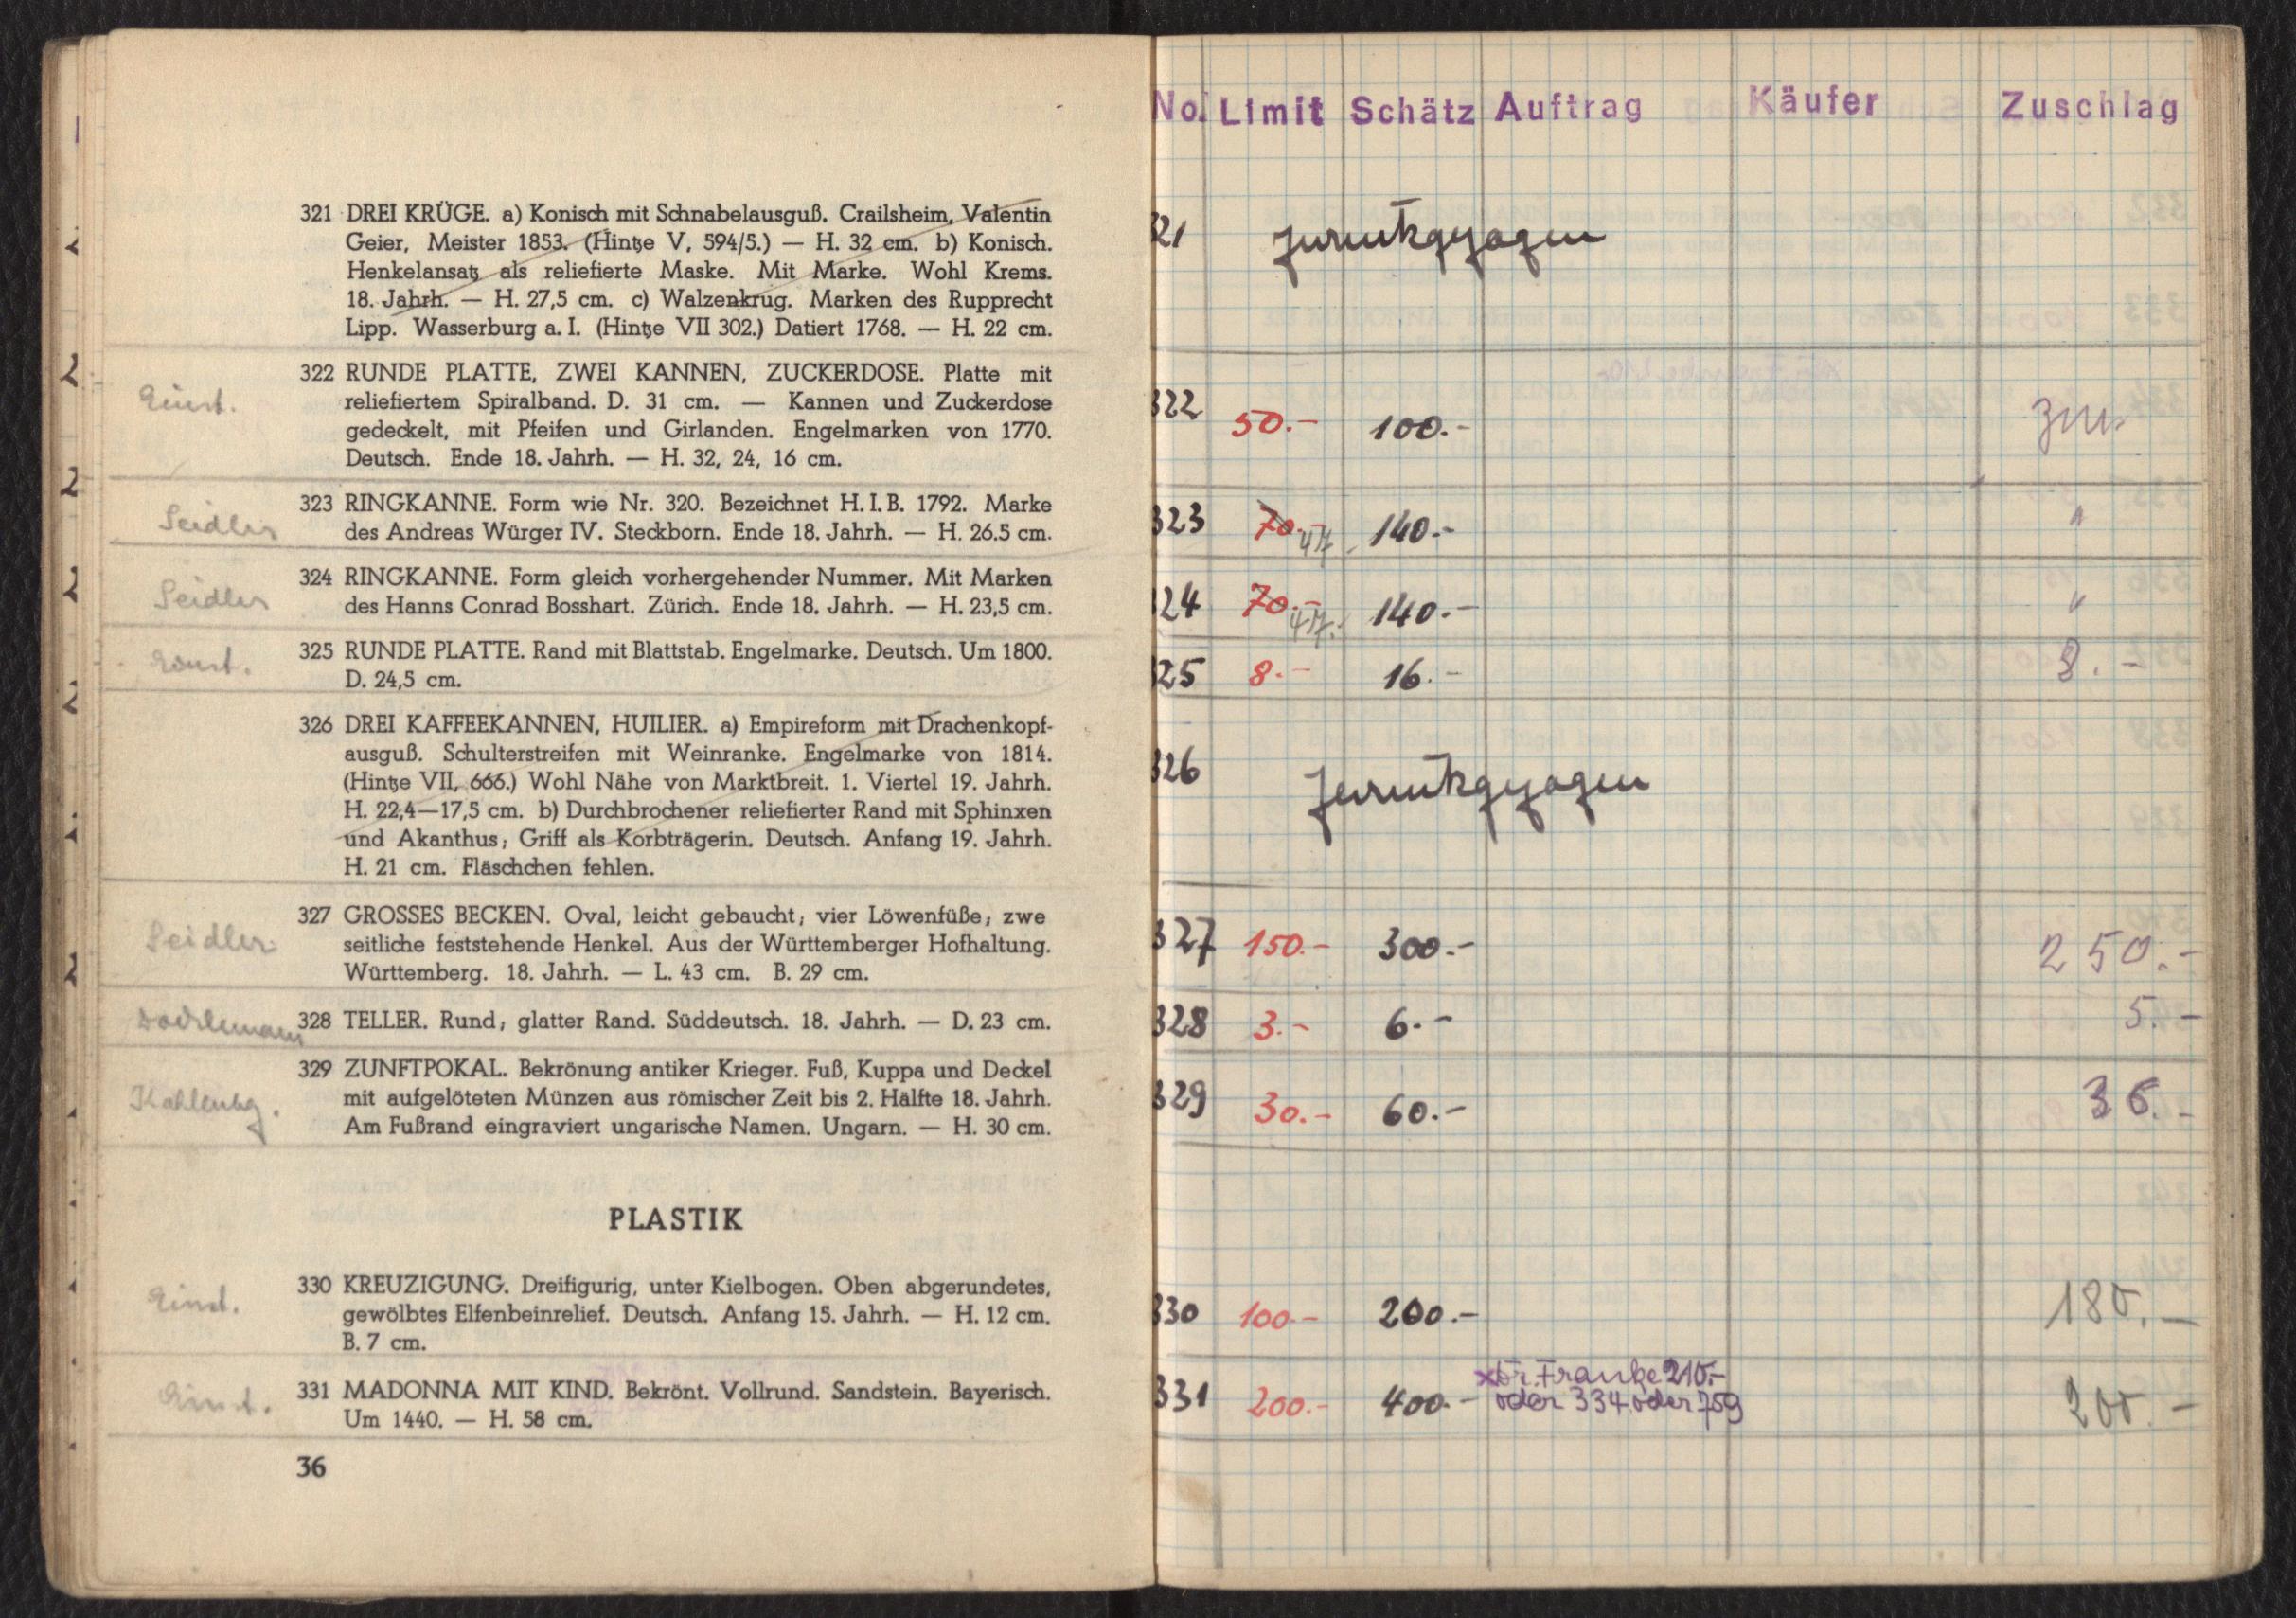 321 DREI KRÜGE. a) Konisch mit Schnabelausguß. Crailsheim, Valentin
Geier, Meister 1853. (Hintze V, 594/5.) — H. 32 cm. b) Konisch.
Henkelansatz als reliefierte Maske. Mit Marke. Wohl Krems.
18. Jahrh. — H. 27,5 cm. c) Walzenkrug. Marken des Rupprecht
Lipp. Wasserburg a. I. (Hintze VII 302.) Datiert 1768. — H. 22 cm.
322 RUNDE PLATTE, ZWEI KANNEN, ZUCKERDOSE. Platte mit
reliefiertem Spiralband. D. 31 cm. — Kannen und Zuckerdose
gedeckelt, mit Pfeifen und Girlanden. Engelmarken von 1770.
Deutsch. Ende 18. Jahrh. — H. 32, 24, 16 cm.
Seidler 323 RINGKANNE. Form wie Nr. 320. Bezeichnet H. I. B. 1792. Marke
des Andreas Würger IV. Steckborn. Ende 18. Jahrh. — H. 26.5 cm.
Seidler 324 RINGKANNE. Form gleich vorhergehender Nummer. Mit Marken
des Hanns Conrad Bosshart. Zürich. Ende 18. Jahrh. — H. 23,5 cm.
325 RUNDE PLATTE. Rand mit Blattstab. Engelmarke. Deutsch. Um 1800.
D. 24,5 cm.
326 DREI KAFFEEKANNEN, HUILIER. a) Empireform mit Drachenkopf-
ausguß. Schulterstreifen mit Weinranke. Engelmarke von 1814.
(Hintze VII, 666.) Wohl Nähe von Marktbreit. 1. Viertel 19. Jahrh.
H. 22,4—17,5 cm. b) Durchbrochener reliefierter Rand mit Sphinxen
und Akanthus; Griff als Korbträgerin. Deutsch. Anfang 19. Jahrh.
H. 21 cm. Fläschchen fehlen.
Seidler 327 GROSSES BECKEN. Oval, leicht gebaucht; vier Löwenfüße; zwe
seitliche feststehende Henkel. Aus der Württemberger Hofhaltung.
Württemberg. 18. Jahrh. — L. 43 cm. B. 29 cm.
328 TELLER. Rund; glatter Rand. Süddeutsch. 18. Jahrh. — D. 23 cm.
329 ZUNFTPOKAL. Bekrönung antiker Krieger. Fuß, Kuppa und Deckel
mit aufgelöteten Münzen aus römischer Zeit bis 2. Hälfte 18. Jahrh.
Am Fußrand eingraviert ungarische Namen. Ungarn. — H. 30 cm.
PLASTIK
Einst. 330 KREUZIGUNG. Dreifigurig, unter Kielbogen. Oben abgerundetes,
gewölbtes Elfenbeinrelief. Deutsch. Anfang 15. Jahrh. — H. 12 cm.
B. 7 cm.
Einst. 331 MADONNA MIT KIND. Bekrönt. Vollrund. Sandstein. Bayerisch.
Um 1440. — H. 58 cm.
36
No. Limit Schätz Auftrag Käufer Zuschlag
21 zurückgezogen
322 50.- 100.-
323 70.- 47.- 140.- "
24 70.- 47.- 140.- "
25 8.- 16.- 8.-
326 zurückgezogen
327 150.- 300.- 250.-
328 3.- 6.- 5.-
329 30.- 60.- 36.-
330 100.- 200.- 180.-
x Dr. Franke 210.-
331 200.- 400.- oder 334 oder 759 200.-